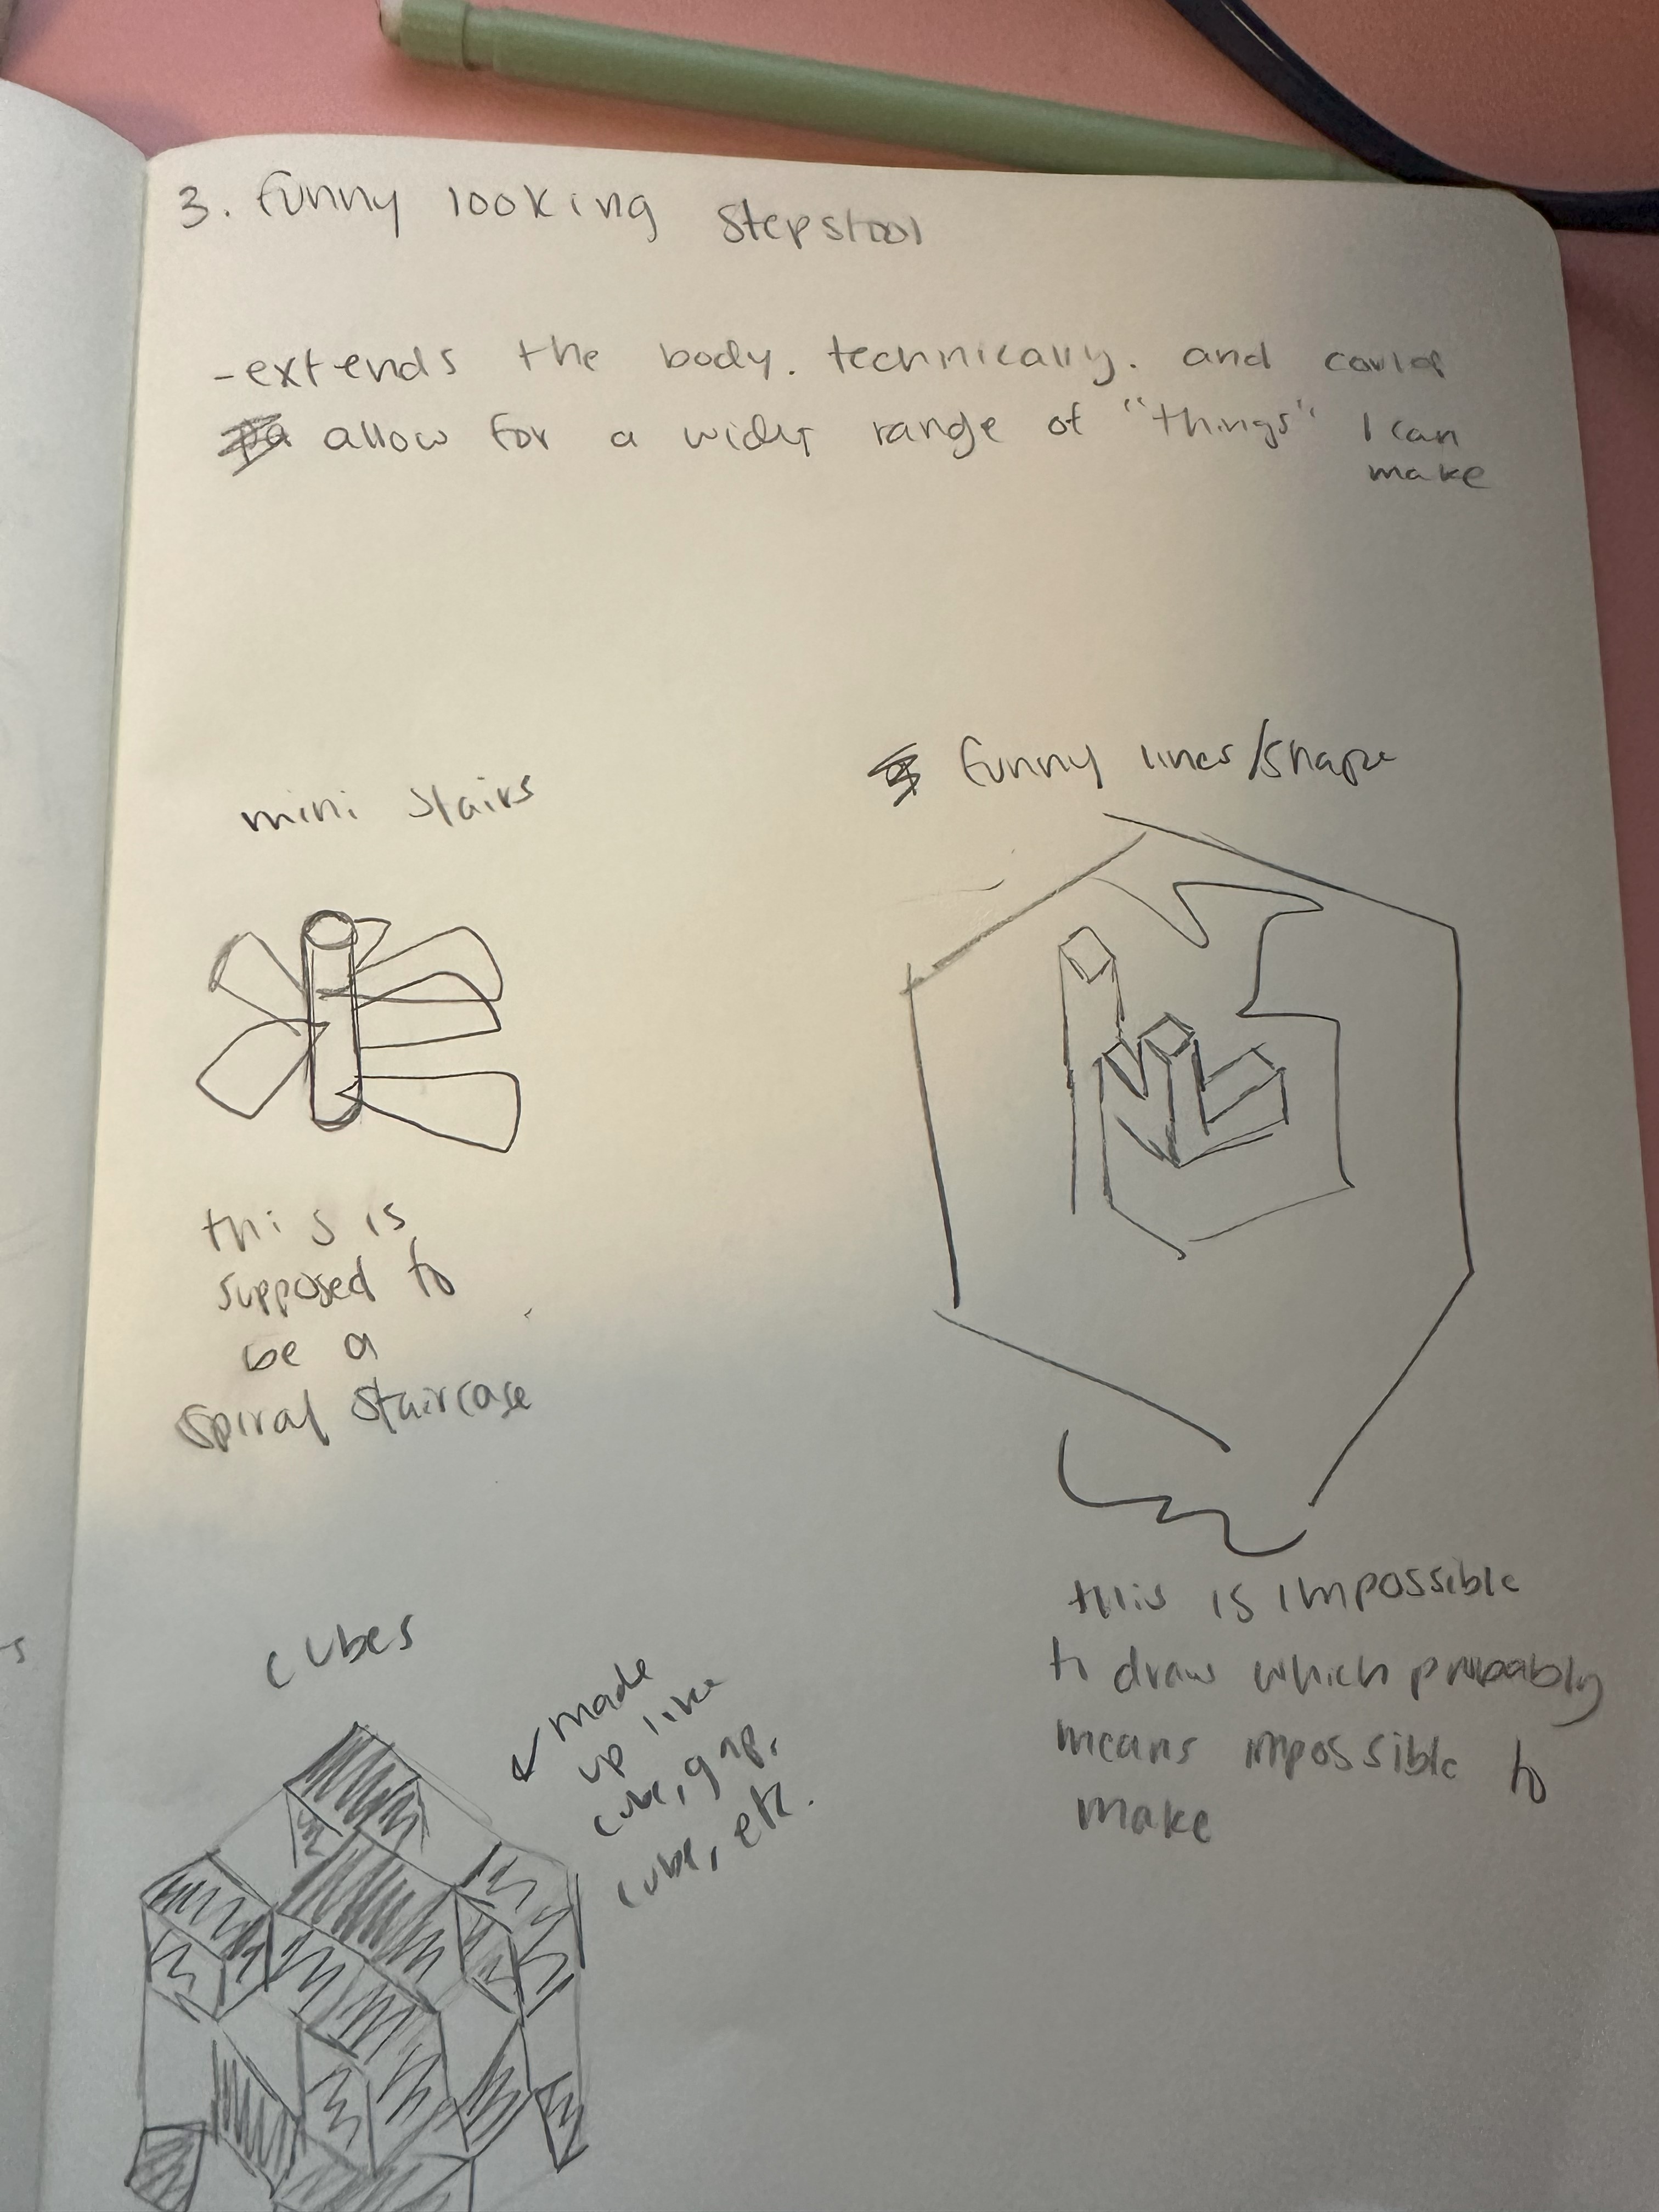 3. funny looking stepstool
- extends the body. technically. and could
allow for a wider range of "things" I can
make
mini stairs
this is
supposed to
be a
spiral staircase
funny lines/shape
this is impossible
to draw which probably
means impossible to
make
cubes
made
up like
cube, gap,
cube, etc.
s